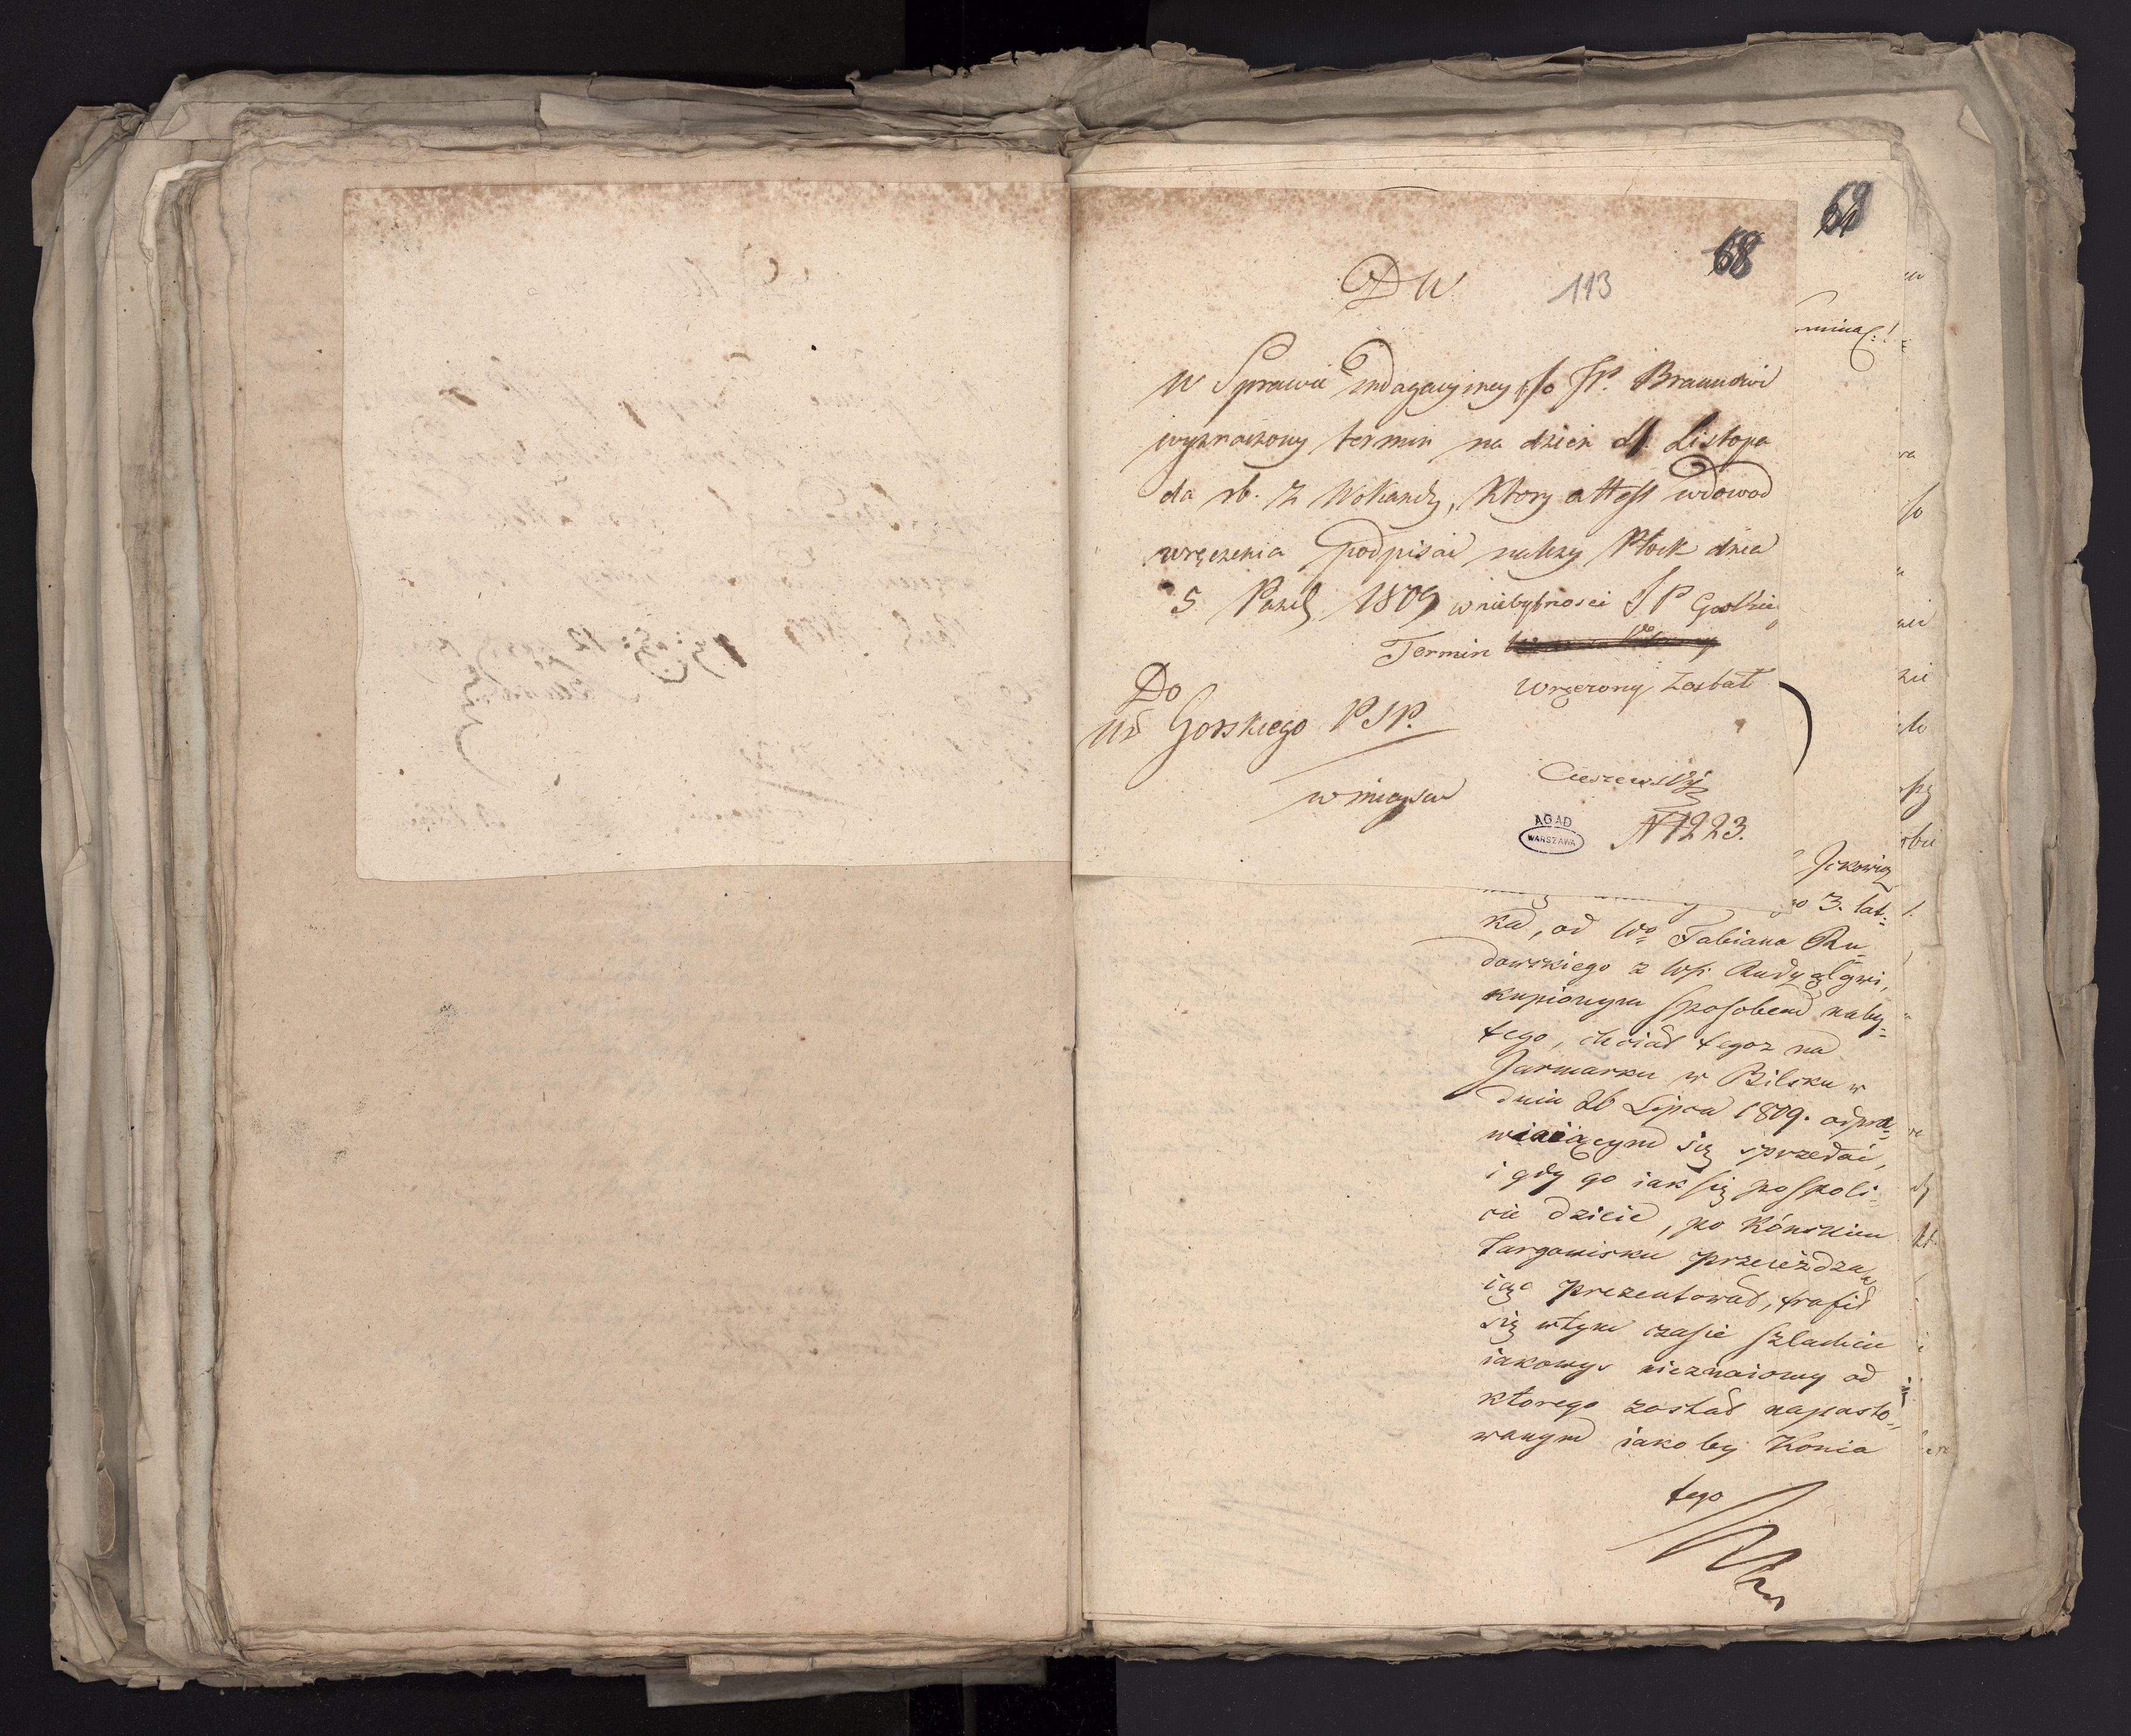 68
69
DW
113
w Sprawie Indagacyiney c/o JP. Braunowi
wyznaczony termin na dzień Listopa
da rb. z Wokandy, ktory attest wdowod
wręczenia podpisać należy Płock dnia
5 Pazd 1809 w niebytnosci JP
Termin
wręczony został
Do
Gorskiego PSP.
w mieyscu
Cieszewski
N 1223.
AGAD
WARSZAWA
Jckowicz
3. lat=
ka, od Wo Fabiana Ru
dowskiego z Wsi Rudy
kupionym sposobem naby=
tego, chciał tegoz na
Jarmarku w Bilsku w
dniu 26 Lipca 1809. odpra=
wiaiącym się sprzedać,
i gdy go iak się pospoli
cie dzieie, po Końskim
Targowisku przeieżdza=
iąc prezentował, trafił
się wtym czasie szlachcic
iakowys nieznaiomy od
ktorego został napasto=
wanym iakoby Konia
tego